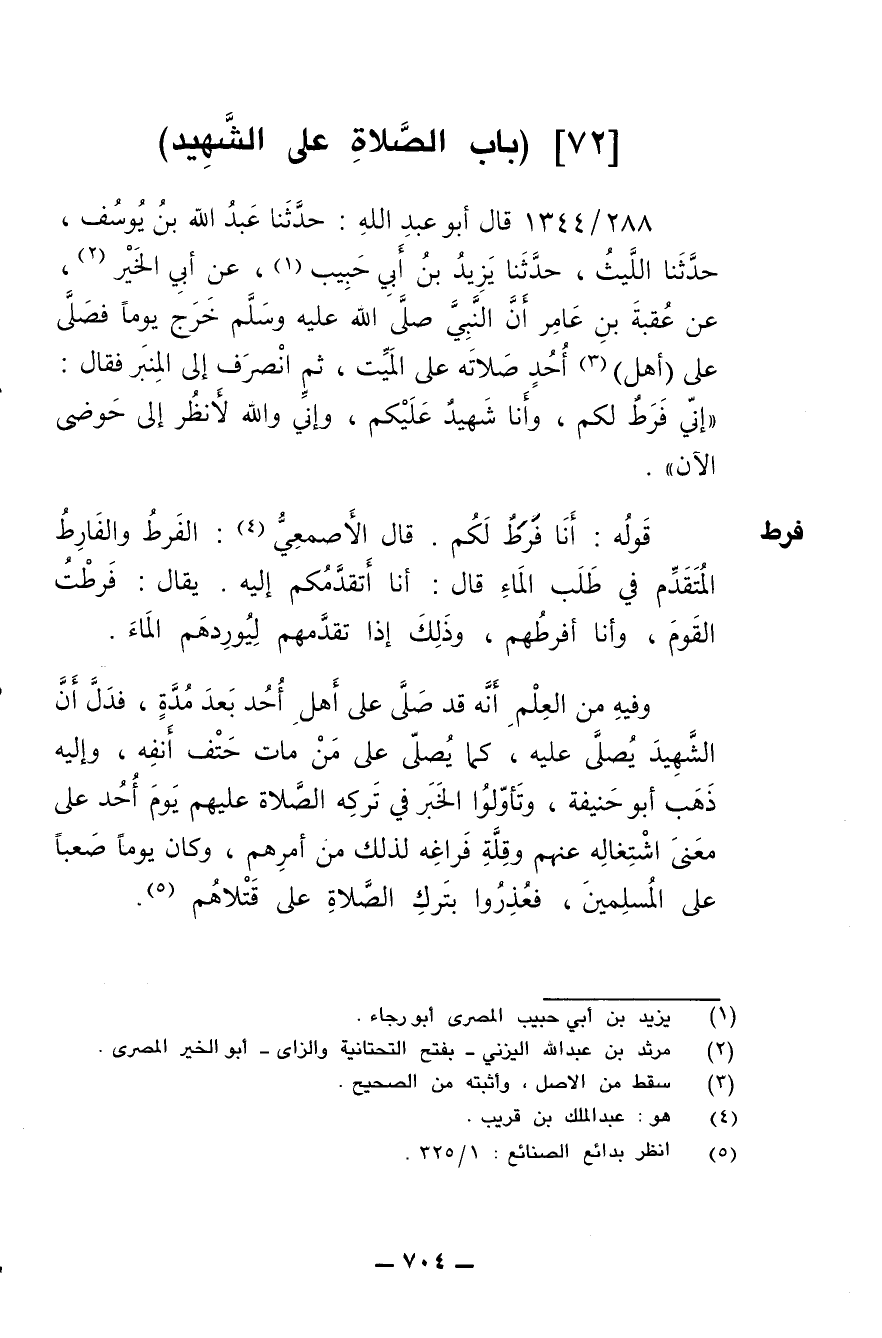 [٧٢] (باب الصَّلاةِ على الشَّهِيد)
١٣٤٤/٢٨٨ قال أبو عبدِ اللهِ : حدَّثَنا عَبدُ الله بنُ يُوسُف ،
حدَّثَنا اللَّيثُ ، حدَّثَنا يَزِيدُ بنُ أَبي حَبِيب (١) ، عن أبي الخَيْر (٢) ،
عن عُقبةَ بنِ عَامِر أَنَّ النَّبِيَّ صلَّى الله عليه وسَلَّم خَرَج يوماً فصَلَّى
على (أهل) (٣) أُحُدٍ صَلاتَه على المَيِّت ، ثم انْصرَف إلى المِنبَر فقال :
«إنيّ فَرَطٌ لكم ، وأَنا شَهيدٌ عَلَيْكم ، وإنيِّ والله لأَنظُر إلى حَوضى
الآن» .
فرط
قَولُه : أَنَا فَرَطٌ لَكُم . قال الأَصمعِيُّ (٤) : الفَرطُ والفَارِطُ
المُتَقَدِّم في طَلَب المَاءِ قال : أنا أَتقدَّمُكم إليه . يقال : فَرطْتُ
القَومَ ، وأنا أفرطُهم ، وذَلِكَ إذا تقدَّمهم لِيُوردهَم المَاءَ .
وفيهِ من العِلْمِ أَنَّه قد صَلَّى على أَهلِ أُحُد بَعدَ مُدَّةٍ ، فدَلَّ أَنَّ
الشَّهِيدَ يُصلَّى عليه ، كما يُصلّى على مَنْ مات حَتْف أَنفِه ، وإليه
ذَهَب أبو حَنيفة ، وتَأوّلوُا الخَبَر في تَركِه الصَّلاة عليهم يَومَ أُحُد على
معَنىَ اشْتِغالِه عنهم وقِلَّةِ فَراغِه لذلك من أمرِهم ، وكان يوماً صَعباً
على المُسلِمينَ ، فعُذِرُوا بتَركِ الصَّلاةِ على قَتْلاهُم (٥).
(١) يزيد بن أبي حبيب المصرى أبو رجاء .
(٢) مرثد بن عبدالله اليزني - بفتح التحتانية والزاى - أبو الخير المصرى .
(٣) سقط من الاصل ، وأثبته من الصحيح .
(٤) هو : عبدالملك بن قريب .
(٥) انظر بدائع الصنائع : ٣٢٥/١ .
– ٧٠٤ –